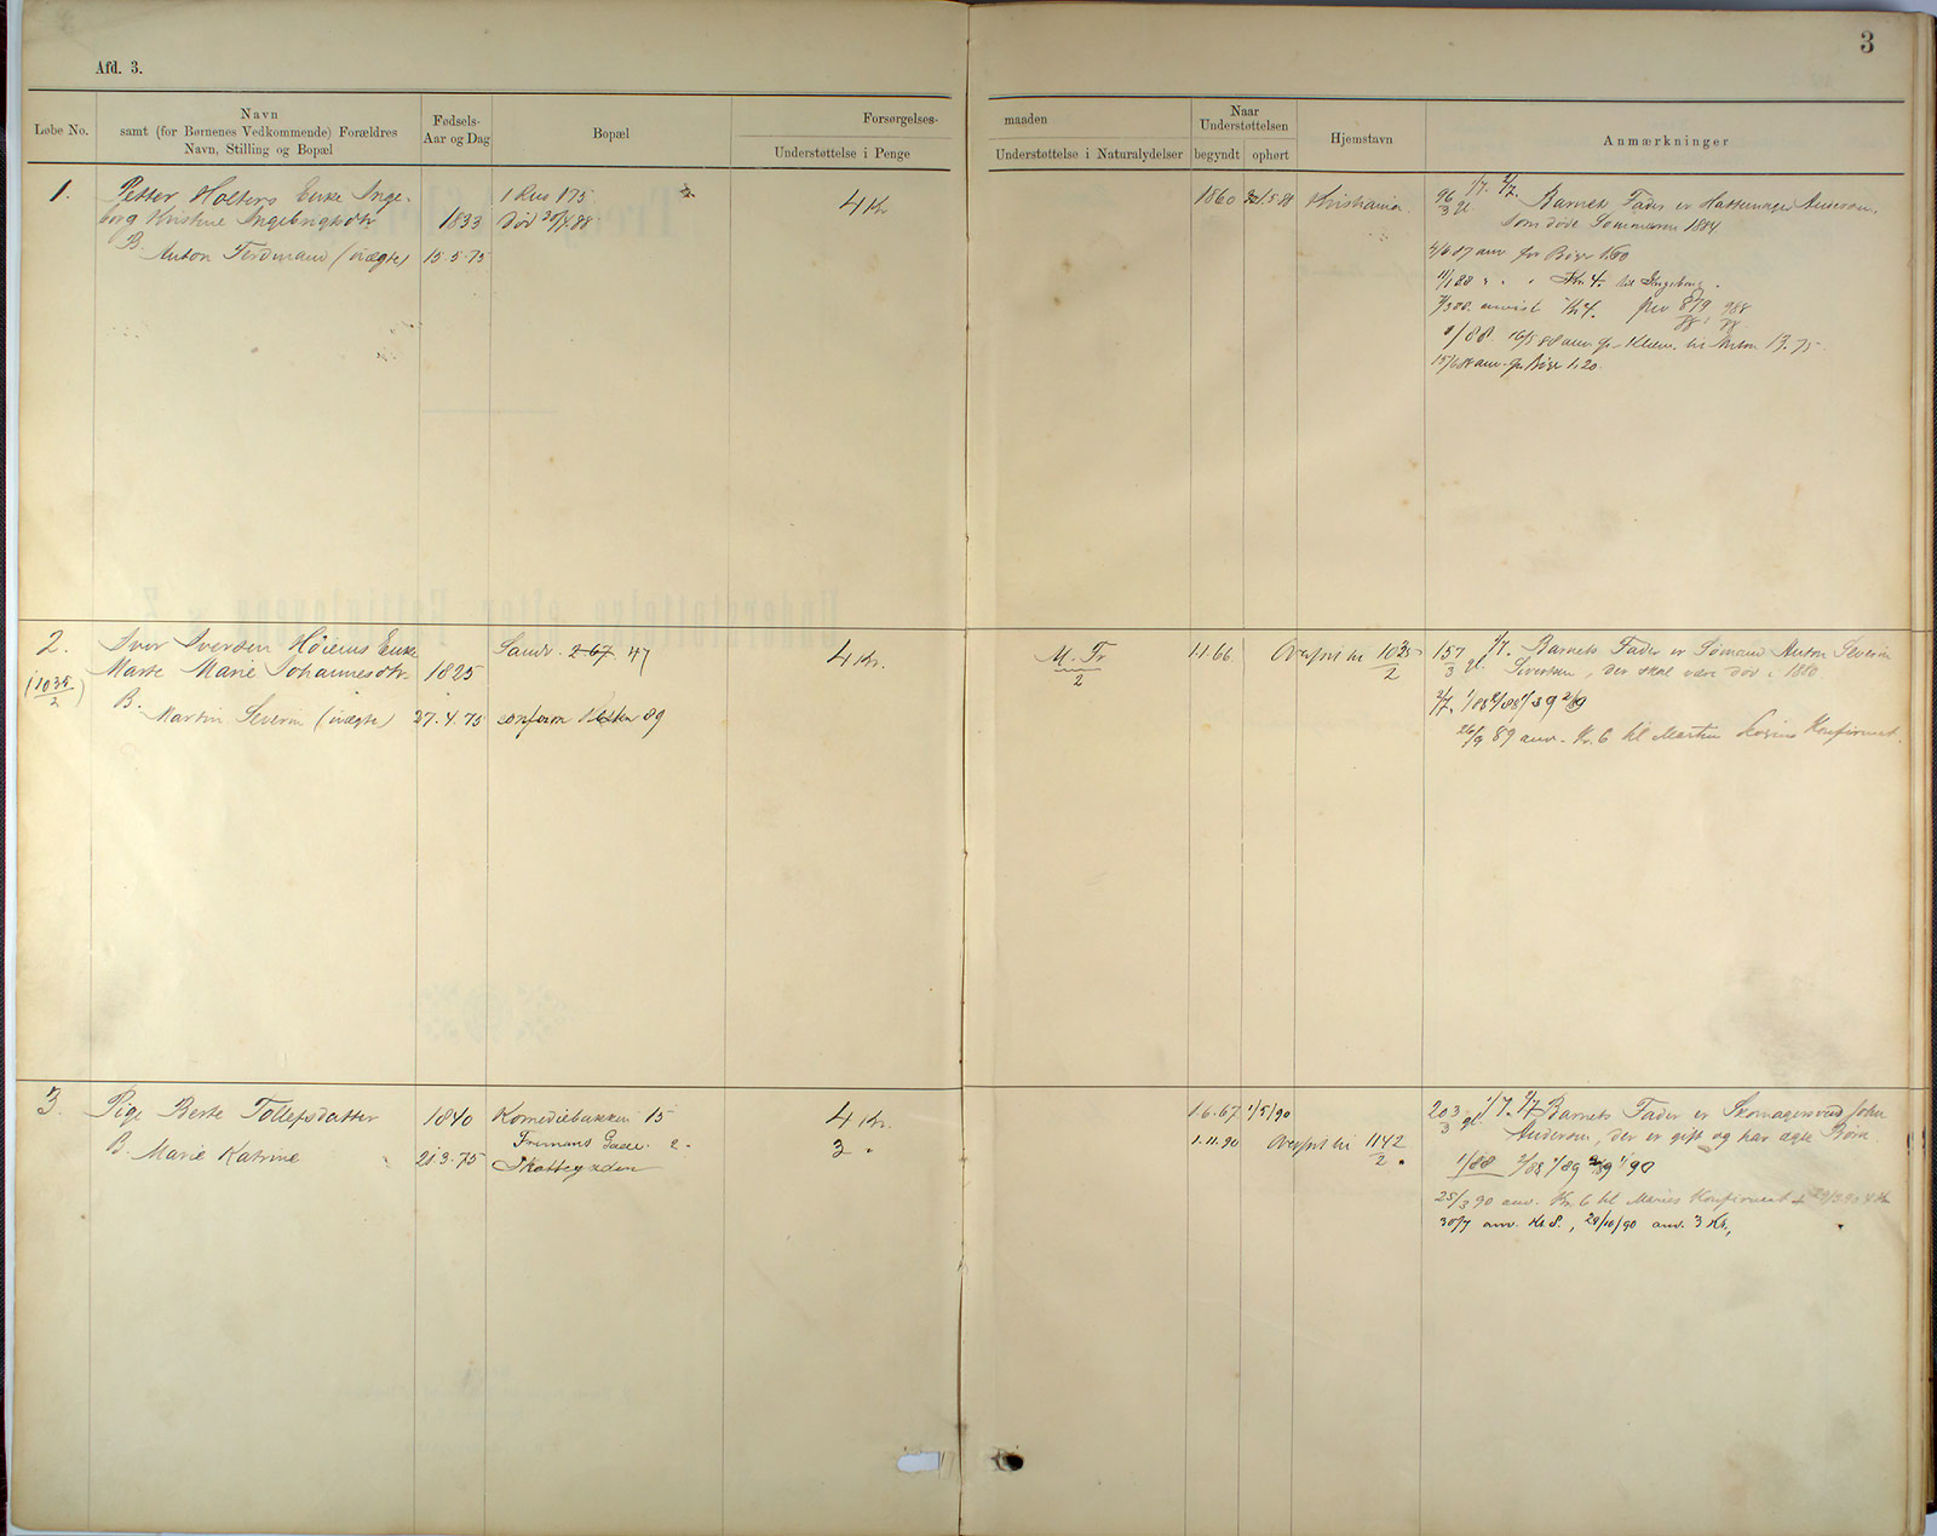 Afd. 3.
3
Løbe No.
Navn
samt (for Børnenes Vedkommende) Forældres
Navn, Stilling og Bopæl
Fødsels-
Aar og Dag
Bopæl
Forsørgelses-
Understøttelse i Penge
maaden
Understøttelse i Naturalydelser
Naar
Understøttelsen
begyndt
ophørt
Hjemstavn
Anmærkninger
1.
Petter Holters Enke Inge-
borg Kristine Ingebrigtsdtr
1833
B.
Anton Ferdinand (uægte)
15.5.75
175
død 88
4 Kr
1860
Kristiania
96/3 gl. 1/7. 2/7. Barnets Fader er Hattemager Anderson,
som døde Sommeren 1884
4/6 87 anv for Bøger 1.60
Kr. 4. til Ingeborg.
anvist Kr 4.
1/88. 16/5 88 anv. til Anton 13.75
15/6 88 anv. Bøger 1.20.
2.
(1035/2)
Iver Iversen Høiens Enke
Marte Marie Johannesdtr.
1825
B.
Martin Severin (uægte)
27.4.75
Sandv. 2 67 47
89
4 Kr.
M. Tr
2
1.1.66
Overført til 1035/2
157/3 gl. 1/7. Barnets Fader er Sømand Anton Severin
Sivertsen, der skal være død i 1880.
26/9 89 anv. Kr. 6 til Martin Konfirmat.
3.
Pige Berte Tollefsdatter
1840
B. Marie Katrine
21.3.75
Komediebakken 15
Frimans Gade. 2.
4 Kr.
3 "
1.6.67
1/5/90
1.11.90
Overført til 1142/2.
203/3 gl. 1/7. 2/7 Barnets Fader er Skomagersvend John
Anderson, der er gift og har ægte Børn.
1/88 2/88 1/89 2/89 1/90
25/3 90 anv. Kr. 6 til Maries Konfirmat
30/7 anv. Kr. 8., 29/10/90 anv. 3 Kr.,